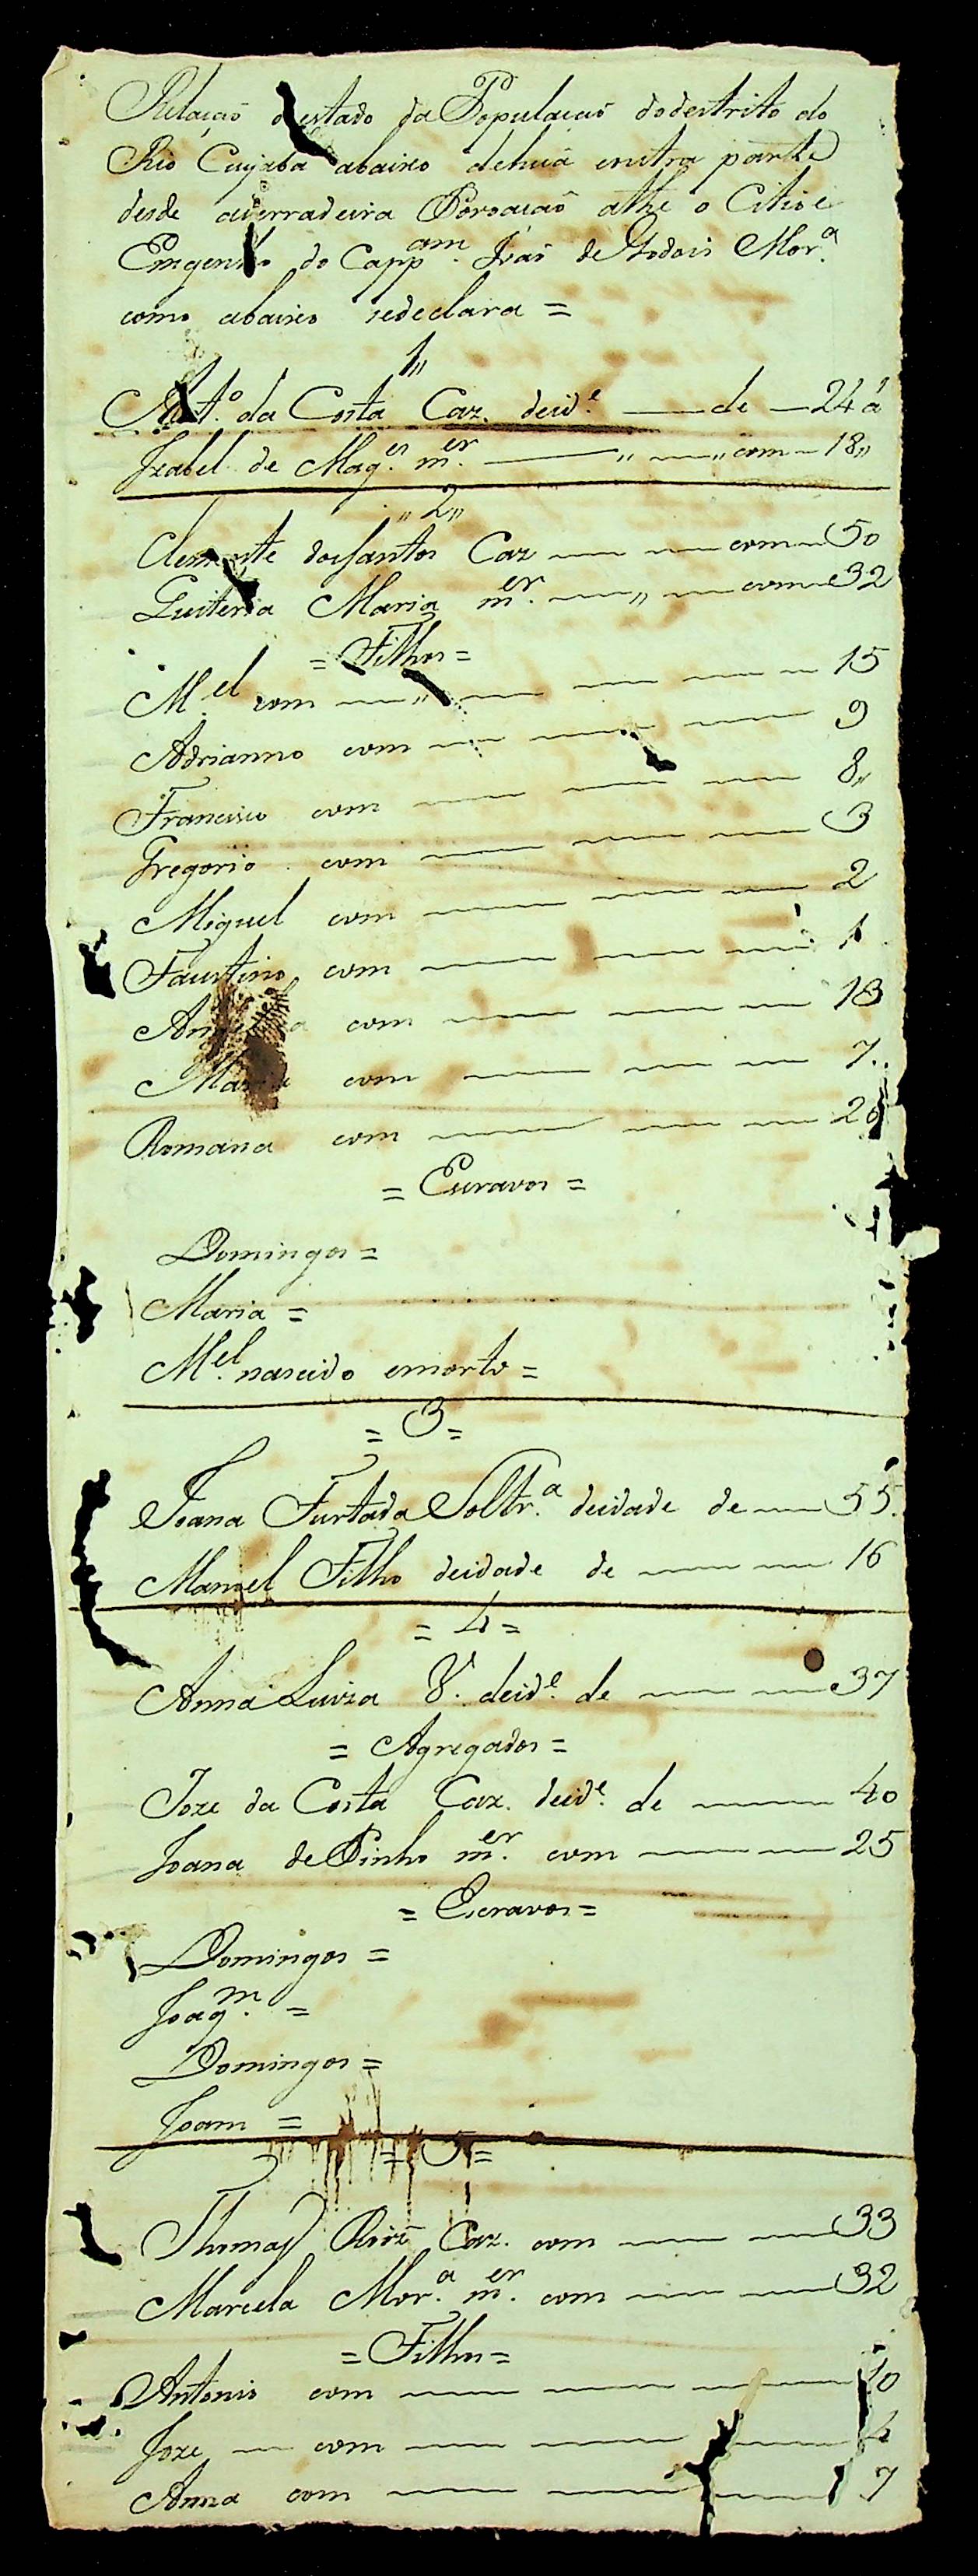 Relação d estado da População dodestrito do
Rio Cuyaba abaixo dehuã eoutra parte
desde aderradeira Povoação athe o Citio e
Emgenho do Cappam. Joaõ deGodois Mor.a
como abaixo sedeclara =
1,,
Ant.o da Costa Caz. deid.e — de — 24 a
Izabel de Mag.es m.er — ,, — ,, com — 18,,
,, 2,,
Clemente dosSantos Caz — — com — 50
Quiteria Maria m.er — ,, — com — 32
= Filhos =
M.el com — ,, — — — — 15
Adrianno com — — — — 9
Francisco com — — — — 8,,
Gregorio com — — — — 3
Miguel com — — — — 2
Faustino com — — — — 1
com — — — — 13
Maria com — — — 7.
Romana com — — — 20
= Escravos =
Domingos =
Maria =
M.el nascido emorto =
= 3 =
Joana Furtada Soltr.a deidade de — 55.
Manoel Filho deidade de — — 16
= 4 =
Anna Luiza V. deid.e de — — 37
= Agregados =
Joze da Costa Caz. deid.e de — — 40
Joana dePinho m.er com — — 25
= Escravos =
Domingos =
Joaq.m =
Domingos =
Joam =
= 5 =
Thomas Roiz Caz. com — — 33
Marcela Mor.a m.er com — — 32
= Filhos =
Antonio com — — — — 10
Joze — com — — — 4
Anna com — — — — 7